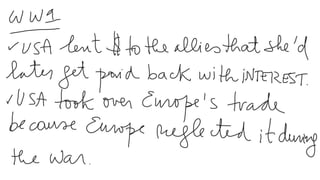 WW1
✓USA lent $ to the allies that she'd
later get paid back with iNTEREST.
✓USA took over Europe's trade
because Europe neglected it during
the war.